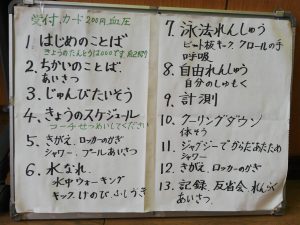 受付、カード200円、血圧
1. はじめのことば
きょうのたんとうは○○○です 自己紹介
2. ちかいのことば
あいさつ
3. じゅんびたいそう
4. きょうのスケジュール
コーチせつめいしてください
5. きがえ、ロッカーのかぎ
シャワー、プールあいさつ
6. 水なれ
水中ウォーキング
キック、けのび、ふしうき
7. 泳法れんしゅう
ビート板キック、クロールの手
呼吸
8. 自由れんしゅう
自分のしゅもく
9. 計測
10. クーリングダウン
体そう
11. ジャグジーでからだあたため
シャワー
12. きがえ、ロッカーのかぎ
13. 記録、反省会、れんらく
あいさつ、